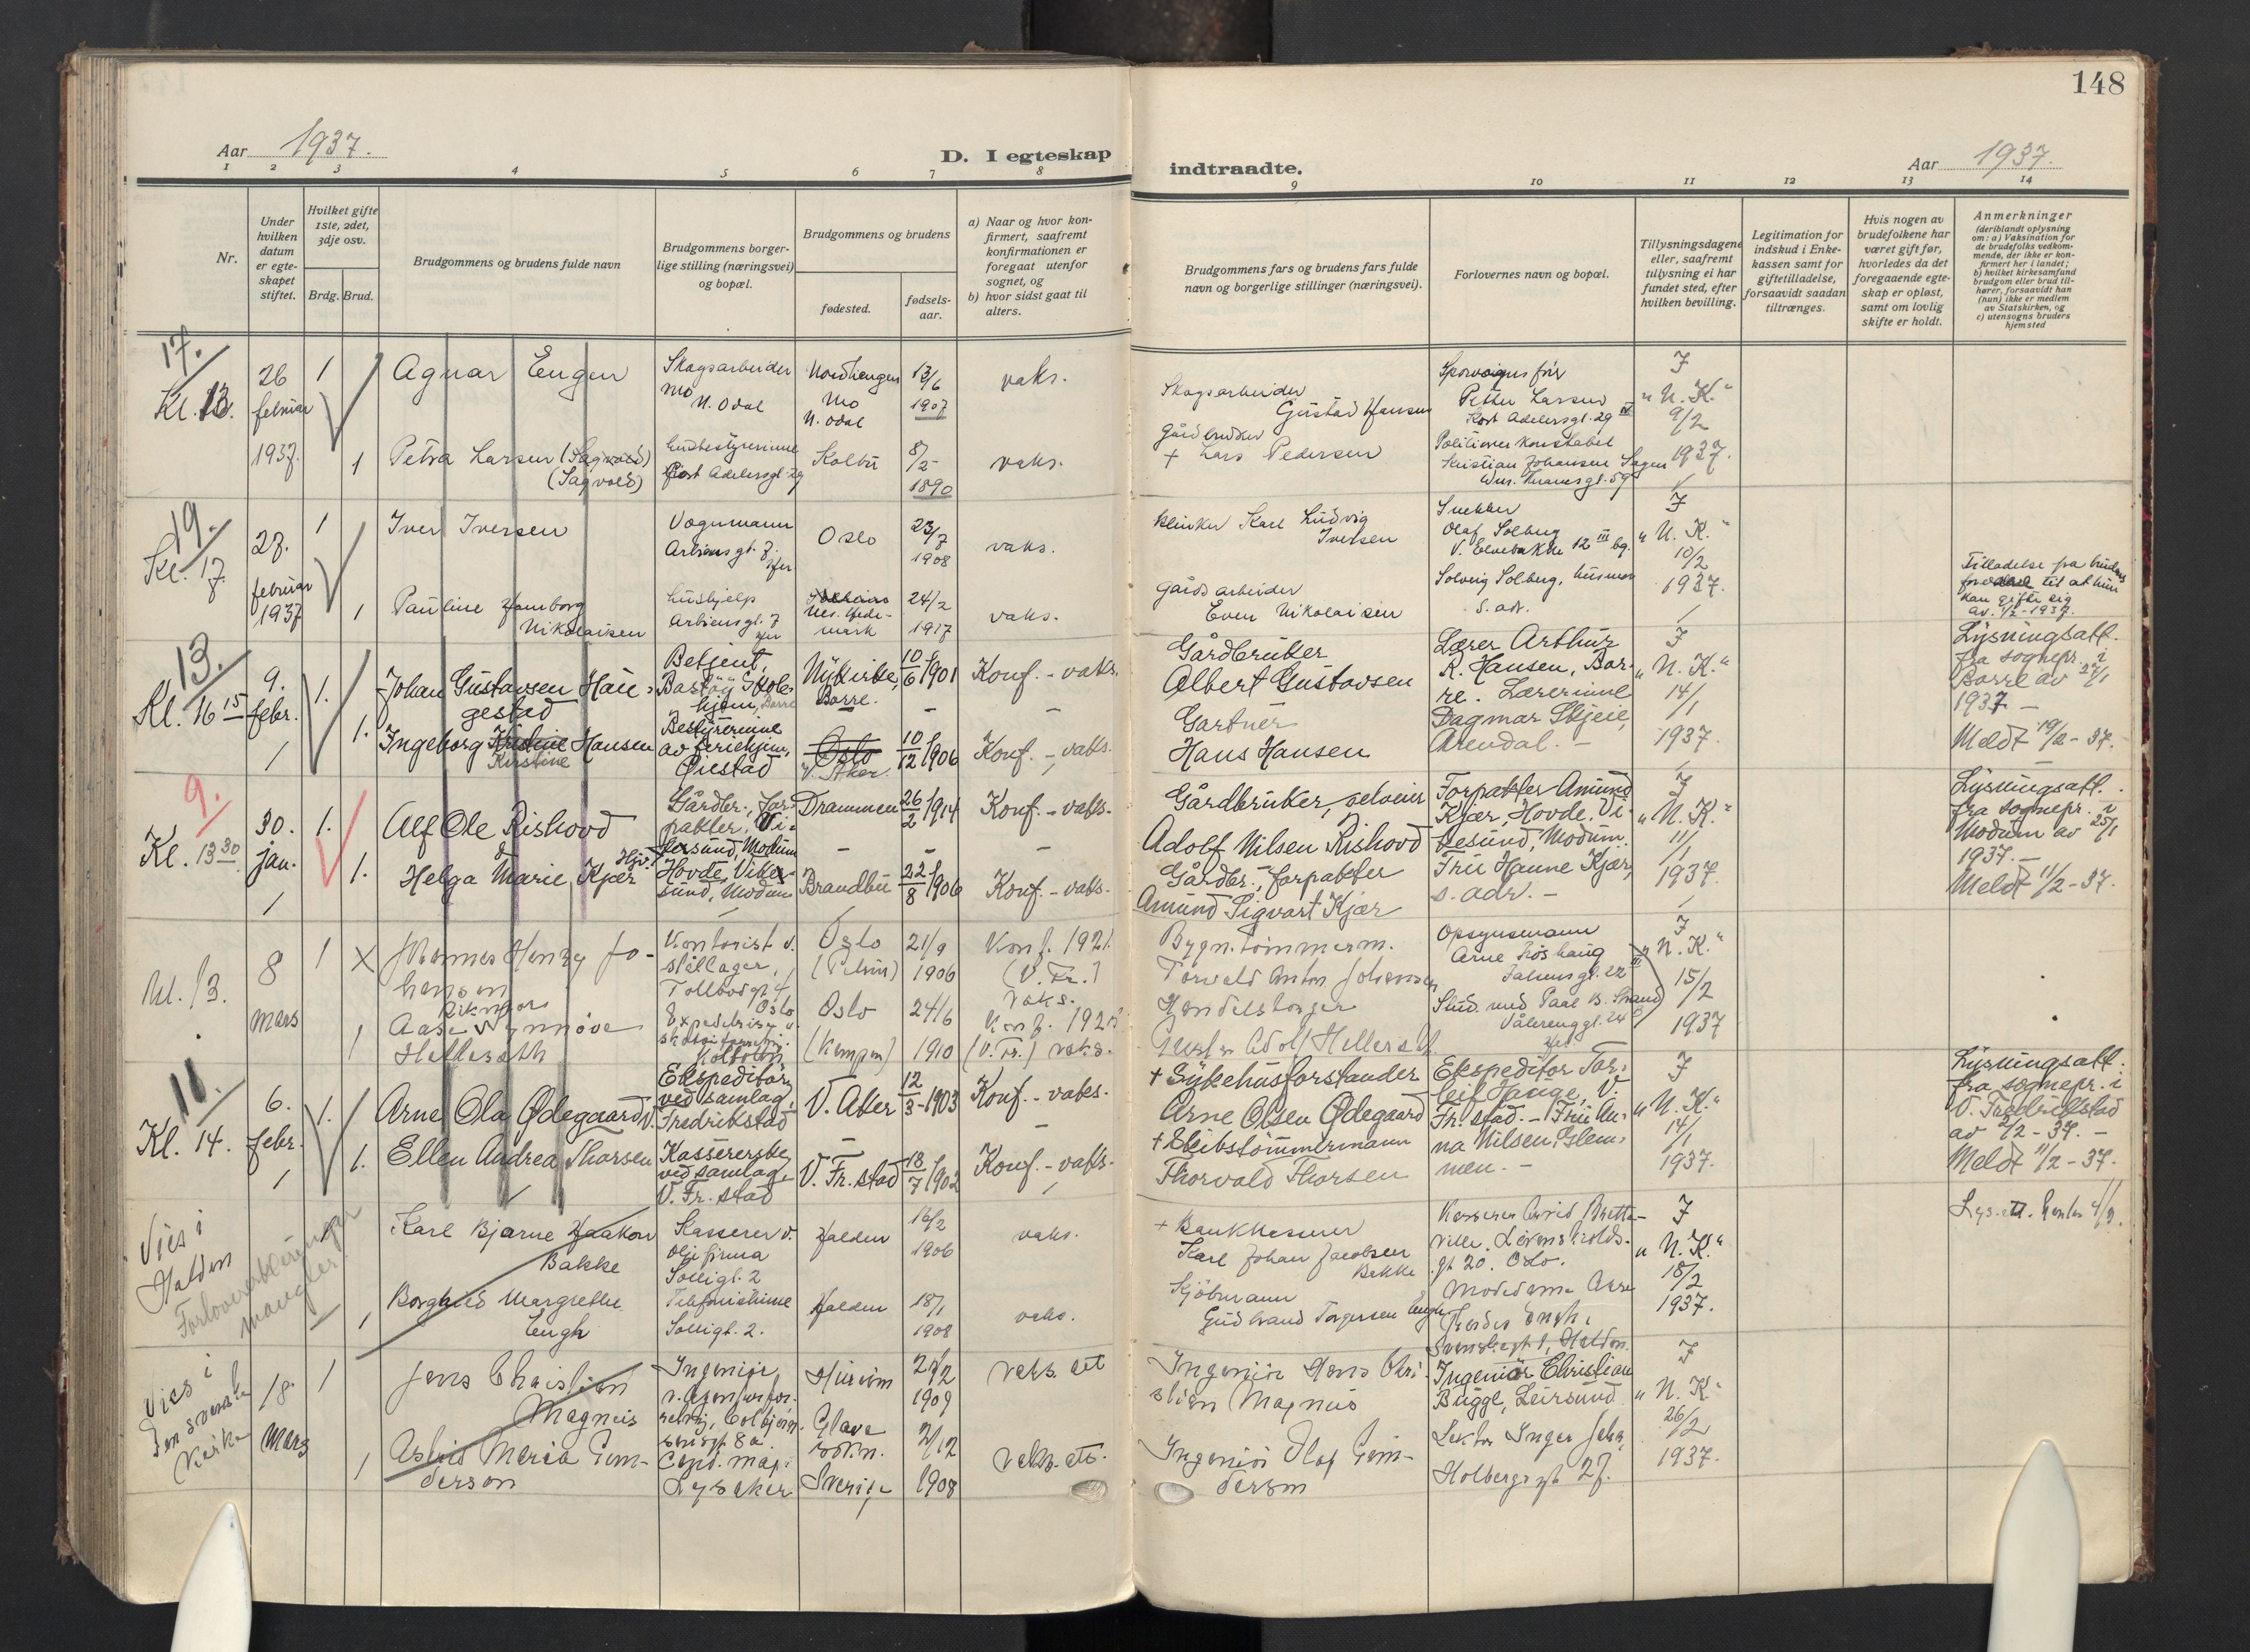 148
Aar 1937.
D. I egteskap
indtraadte.
Aar 1937.
1 2 3 4 5 6 7 8
9 10 11 12 13 14
Nr.
Under
hvilken
datum
er egte-
skapet
stiftet.
Hvilket gifte
1ste, 2det,
3dje osv.
Brdg. Brud.
Brudgommens og brudens fulde navn
Brudgommens borger-
lige stilling (næringsvei)
og bopæl.
Brudgommens og brudens
fødested.
fødsels-
aar.
a) Naar og hvor kon-
firmert, saafremt
konfirmationen er
foregaat utenfor
sognet, og
b) hvor sidst gaat til
alters.
Brudgommens fars og brudens fars fulde
navn og borgerlige stillinger (næringsvei).
Forlovernes navn og bopæl.
Tillysningsdagene
eller, saafremt
tillysning ei har
fundet sted, efter
hvilken bevilling.
Legitimation for
indskud i Enke-
kassen samt for
giftetilladelse,
forsaavidt saadan
tiltrænges.
Hvis nogen av
brudefolkene har
været gift før,
hvorledes da det
foregaaende egte-
skap er opløst,
samt om lovlig
skifte er holdt.
Anmerkninger
(deriblandt oplysning
om: a) Vaksination for
de brudefolks vedkom-
mende, der ikke er kon-
firmert her i landet;
b) hvilket kirkesamfund
brudgom eller brud til-
hører, forsaavidt han
(hun) ikke er medlem
av Statskirken, og
c) utensogns bruders
hjemsted
17.
Kl. 13.
26
februar
1937.
1
1
Agnar Engen
Petra Larsen (Sagvold)
(Sagvold)
Skogsarbeider
Mo
N. Odal
Husbestyrerinne
Kort Adelersgt. 29
Nordhengen
Mo
N. Odal
13/6
1907
vaks.
Kolbu
8/5
1890
vaks.
Skogsarbeider
Gustav Hansen
Gårdbruker
+ Lars Pedersen
Petter Larsen
Kort Adelersgt. 29 IV
Politioverkonstabel
Kristian Johansen Sagen
I
"U. K."
9/2
1937.
19.
Kl. 17.
27.
februar
1937
1
1
Iver Iversen
Pauline Hamborg
Nikolaisen
Vognmann
Arbiensgt. 7.
Oslo
23/7
1908
vaks.
Hushjelp
Arbiensgt. 7
Nes. Hede-
mark
24/2
1917
vaks.
Karl Ludvig
Iversen
Gårdsarbeider
Even Nikolaisen
Snekker
Olaf Solberg
V. Elvebakke 12 III bg.
Solveig Solberg, husmor
s. adr.
I
"U. K."
10/2
1937.
Tilladelse fra brudens
foreldre til at hun
kan gifte sig
av. 7/2-1937.
13.
Kl. 16 15
9.
febr.
1.
1.
Johan Gustavsen Hau-
gestad
Ingeborg Kristine Hansen
Kirstine
Betjent,
Bastøy Skole-
hjem, Borre
Bestyrerinne
av feriehjem,
Øiestad
Nykirke,
Borre.
10/6 1901
Konf. - vaks.
Oslo
V. Aker.
10/12 1906
Konf. - vaks.
Gårdbruker
Albert Gustavsen
Gartner
Hans Hansen
Lærer Arthur
R. Hansen, Bor-
re. Lærerinne
Dagmar Skjeie,
Arendal. -
I
"U. K."
14/1
1937.
Lysningsatt.
fra sognepr. i
Borre av 27/1
1937 -
Meldt 19/2 - 37.
9.
Kl. 13 30
30.
jan.
1.
1.
Alf Ole Rishovd
&
Helga Marie Kjær
Gårdbr., for-
pakter, Vi-
kesund, Modum
Hovde, Vike-
sund, Modum
Drammen
26/2 1914
Konf. - vaks.
Brandbu
22/8 1906
Konf. - vaks.
Gårdbruker, selveier
Adolf Nilsen Rishovd
Gårdbr., forpakter
Amund Sigvart Kjær
Forpakter Amund
Kjær, Hovde, Vi-
kesund, Modum.
Fru Hanne Kjær,
s. adr. -
I
"U. K."
11/1
1937.
Lysningsatt.
fra sognepr. i
Modum av 25/1
1937. -
Meldt 11/2 - 37.
Kl. 13.
8
mars
1
1
Johannes Henry Jo-
hansen
Aase Synnøve
Hellesøth
Kontorist v.
stållager,
Tollbodgt. 4
Oslo
Kolbotn
Oslo
(Petrus)
21/9
1906
Konf. 1921.
(V. Fr.)
vaks.
Oslo
(Kampen)
24/6
1910
(V. Fr.) vaks.
Bygn. tømmerm.
Torvald Anton Johansen
Handelsborger
Opsynsmann
Stud. med Paal B. Strand
Vålerenggt. 24
I
"U. K."
15/2
1937
11.
Kl. 14.
6.
febr.
1.
1.
Arne Ola Ødegaard
Ellen Andrea Thorsen
Ekspeditør
ved samlag,
V. Fredrikstad
Kassererske
ved samlag
V. Fr. stad
V. Aker
12/3 - 1903
Konf. - vaks.
V. Fr. stad
18/7 1902
Konf. - vaks.
+ Sykehusforstander
Arne Olsen Ødegaard
+ Skibstømmermann
Thorvald Thorsen
Ekspeditør Tor-
leif Hauge, V.
Fr. stad. - Fru An-
na Nilsen, Glem-
men. -
I
"U. K."
14/1
1937.
Lysningsatt.
fra sognepr. i
V. Fredrikstad
av 2/2 - 37. -
Meldt 11/2 - 37.
Vies i
Halden
Forlovererklæringer
mangler
1
Karl Bjarne Haakon
Bakke
Borghild Margrethe
Engh
Kasserer v.
oljefirma
Solligt. 2
Telefonistinne
Solligt. 2.
Halden
16/2
1906
vaks.
Halden
18/1
1908
vaks.
+ Bankkasserer
Karl Johan Jacobsen
Bakke
Kjøbmann
Gudbrand Torgersen Engh
Kasserer Arvid Brette-
ville. Løvenskiolds-
gt 20. Oslo.
I
"U. K."
18/2
1937.
Vies i
Den svenske
Kirke
18.
Mars
1
1
Jens Christian
Magnus
Astrid Maria Gun-
derson
Ingeniør
Lysaker
1909
vaks. att
Glava
sokn.
Sverige
2/12
1908
vaks. att.
Ingeniør Hans Chri-
stian Magnus
Ingeniør Olof Gun-
derson
Ingeniør Christian
Bugge, Leirsund
Lektor Inger
Holbergsgt. 27.
I
"U. K."
26/2
1937.